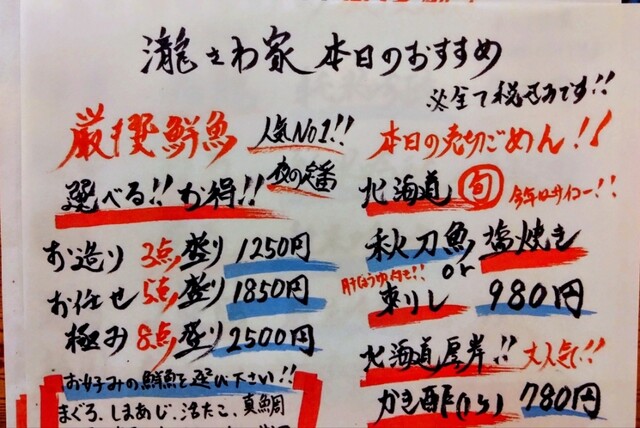 瀧さわ家 本日のおすすめ
※全て税込みです!!
厳撰鮮魚
人気No1!!
夜の定番
選べる!!お得!!
お造り 3点盛り 1250円
お任せ 5点盛り 1850円
極み 8点盛り 2500円
お好みの鮮魚を選び下さい!!
まぐろ、しまあじ、活たこ、真鯛
本日の売切ごめん!!
北海道 旬 今年はサイコー!!
秋刀魚 塩焼き
or
肝じょうゆ付き!!
刺し 980円
北海道厚岸!! 大人気!!
かき酢(1つ) 780円